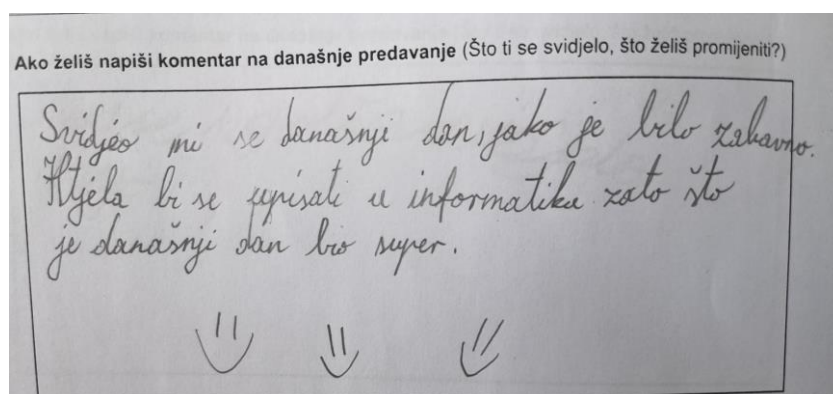 Ako želiš napiši komentar na današnje predavanje (Što ti se svidjelo, što želiš promijeniti?)
Svidjeo mi se današnji dan, jako je bilo zabavno.
Htjela bi se upisati u informatiku zato što
je današnji dan bio super.